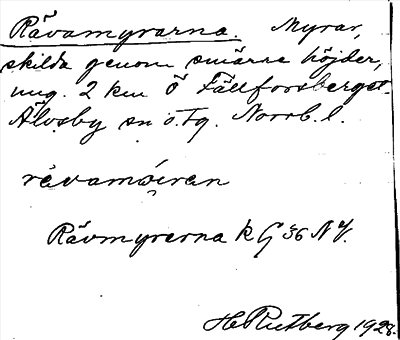 Rävamyrarna. Myrar,
skilda genom smärre höjder,
ung. 2 km Ö Fällforsberget.
Älvsby sn ö. Tg. Norrb. l.
Rävmyrerna k G 36 NV.
H Rutberg 1928.